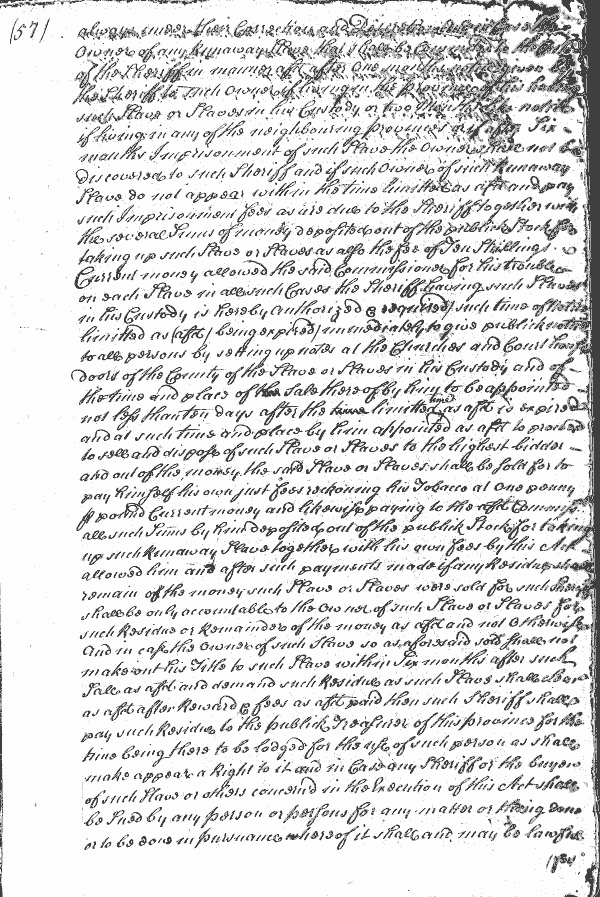 (57)
always under their Correction and Direction and in Case the
Owner of any runaway Slave that shall be Committed to the Custody
of the Sheriff in manner afd. after One months notice given by
the Sheriff to such Owner if living in the province of his having
such Slave or Slaves in his Custody or two months like notice
if living in any of the neighbouring provinces or if after Six
months Imprisonment of such Slave the Owner shall not be
discovered to such Sheriff and if such Owner of such runaway
Slave do not appear within the time limitted as afd. and pay
such Imprisonment fees as are due to the Sheriff together with
the several Sums of money deposited out of the publick Stock for
taking up such Slave or Slaves as also the fee of Ten Shillings
Current money allowed the said Commissioner for his trouble
on each Slave in all such Cases the Sheriff having such Slaves
in his Custody is hereby authorized & required (such time of notice
limitted as (afd.) being expired) immediately to give publick notice
to all persons by setting up notes at the Churches and Court house
doors of the County of the Slave or Slaves in his Custody and of
the time and place of the Sale thereof by him to be appointed
not less than ten days after the time limitted as afd. is expired
and at such time and place by him appointed as afd. to proceed
to sell and dispose of such Slave or Slaves to the highest bidder
and out of the money the said Slave or Slaves shall be sold for to
pay himself his own just fees reckoning his Tobacco at One penny
p pound Current money and likewise paying to the afd. Commissr.
all such Sums by him deposited out of the publick Stock for taking
up such runaway Slave together with his own fees by this Act
allowed him and after such payments made if any Residue shall
remain of the money such Slave or Slaves were sold for such Sheriff
shall be only accountable to the Owner of such Slave or Slaves for
such Residue or Remainder of the money as afd. and not Otherwise
And in case the Owner of such Slave so as aforesaid sold shall not
make out his Title to such Slave within Six months after such
Sale as afd. and demand such Residue as such Slave shall clear
as afd. after Reward & fees as afd. paid then such Sheriff shall
pay such Residue to the publick Treasurer of this province for the
time being there to be lodged for the use of such person as shall
make appear a Right to it and in Case any Sheriff or the buyer
of such Slave or others concernd in the Execution of this Act shall
be Sued by any person or persons for any matter or thing done
or to be done in pursuance hereof it shall and may be lawfull